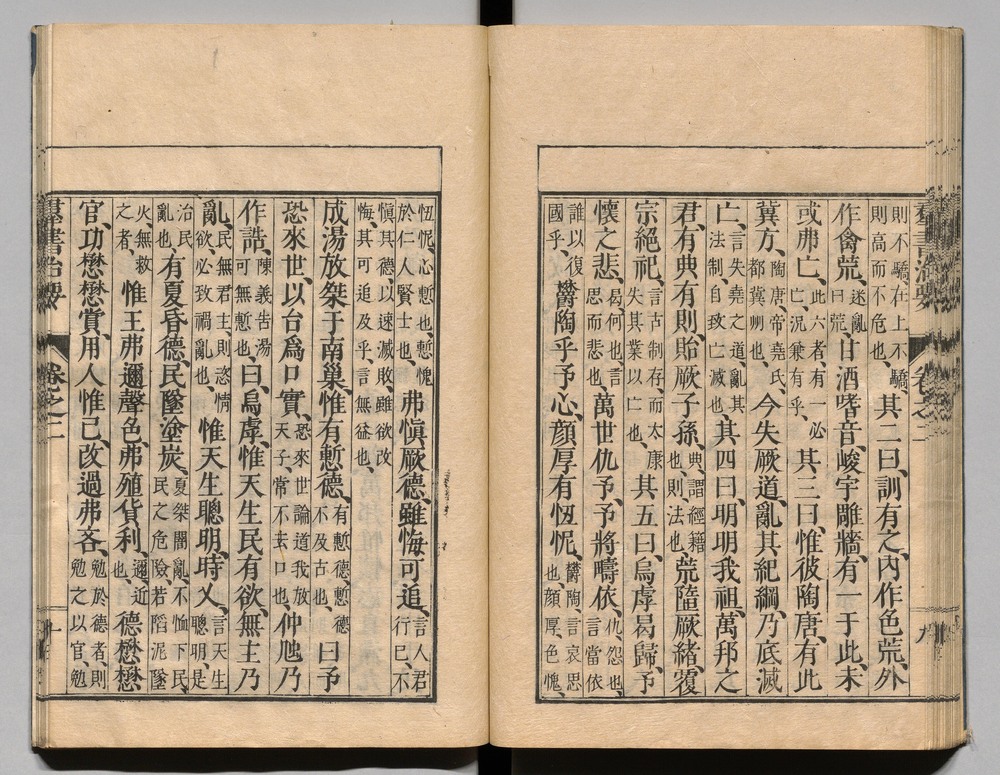 則不驕、在上不驕、則高而不危也、其二曰、訓有之、內作色荒、外
作禽荒、迷亂曰荒、甘酒嗜音、峻宇雕牆、有一于此、未
或弗亡、此六者有一必亡、況兼有乎、其三曰、惟彼陶唐、有此
冀方、陶唐、帝堯氏、都冀州也、今失厥道、亂其紀綱、乃底滅
亡、言失堯之道、亂其法制、自致亡滅也、其四曰、明明我祖、萬邦之
君、有典有則、貽厥子孫、典、謂經籍也、則、法也、荒墮厥緒、覆
宗絕祀、言古制存、而太康失其業以亡也、其五曰、烏虖曷歸、予
懷之悲、曷、何也、言思而悲也、萬世仇予、予將疇依、仇、怨也、言當依
誰以復國乎、鬱陶乎予心、顏厚有忸怩、鬱陶、言哀思也、顏厚、色愧、
忸怩、心慙也、慙愧於仁人賢士也、弗愼厥德、雖悔可追、言人君行己、不
愼其德、以速滅敗、雖欲改悔、其可追及乎、言無益也、
成湯放桀于南巢、惟有慙德、有慙德、慙德不及古也、曰、予
恐來世、以台爲口實、恐來世論道我放天子、常不去口也、仲虺乃
作誥、陳義告湯可無慙也、曰、烏虖、惟天生民有欲、無主乃
亂、民無君主、則恣情欲、必致禍亂也、惟天生聰明、時乂、言天生聰明、是
治民亂也、有夏昏德、民墜塗炭、夏桀闇亂、不恤下民、民之危險、若陷泥墜
火、無救之者、惟王弗邇聲色、弗殖貨利、邇、近也、德懋懋
官、功懋懋賞、用人惟己、改過弗吝、勉於德者、則勉之以官、勉
羣書治要
卷之二
九
十